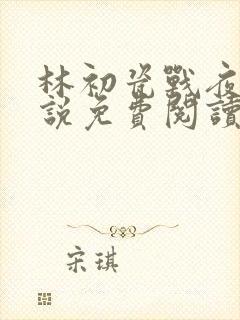 林初瓷戰夜
說免費閱讀
宋琪